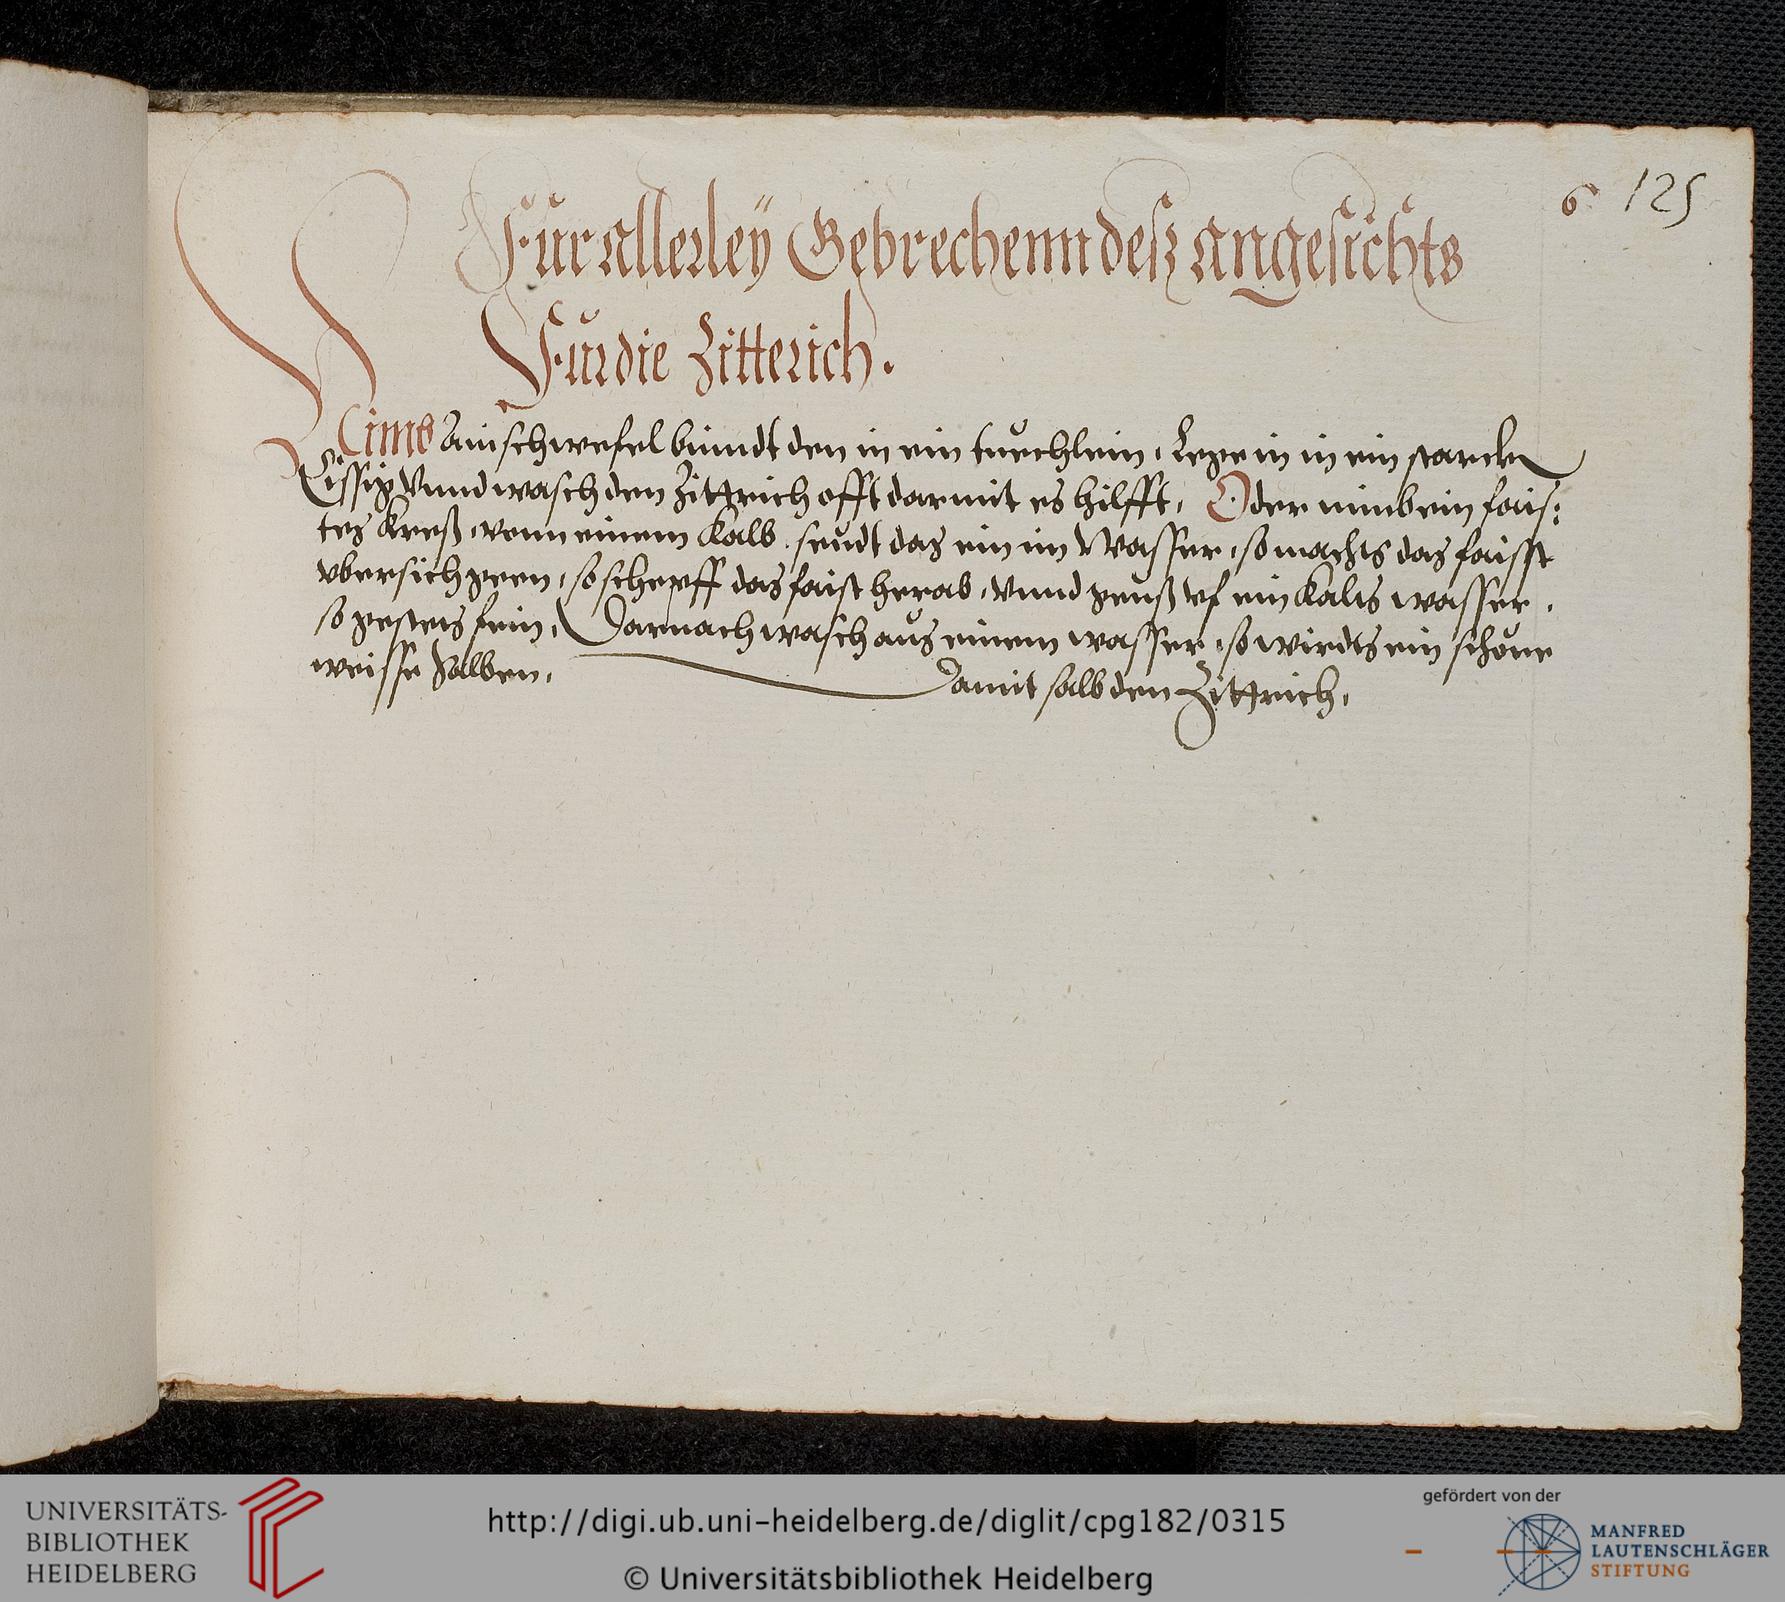 6 125
Für allerley Gebrechenn deß angesichts
Für die Zitterich.
Nimb ain schwefel bindt den in ein tuechlein, Lege in in ein starcken
Essig Vnnd wasch den Zittrich offt darmit es hilfft, Oder nimb ein fais:
tes Kreß, vonn einem Kalb, seudt das ein im Wasser, so machts das faisst
vbersich geen, so schepff das faist herab, vnnd geuß vf ein Kalts wasser,
so gestets fein, Darnach wasch aus einem wasser, so wirdts ein schöne
weisse Salben, Damit salb den Zittrich,
UNIVERSITÄTS-
BIBLIOTHEK
HEIDELBERG
http://digi.ub.uni-heidelberg.de/diglit/cpg182/0315
© Universitätsbibliothek Heidelberg
gefördert von der
MANFRED
LAUTENSCHLÄGER
STIFTUNG